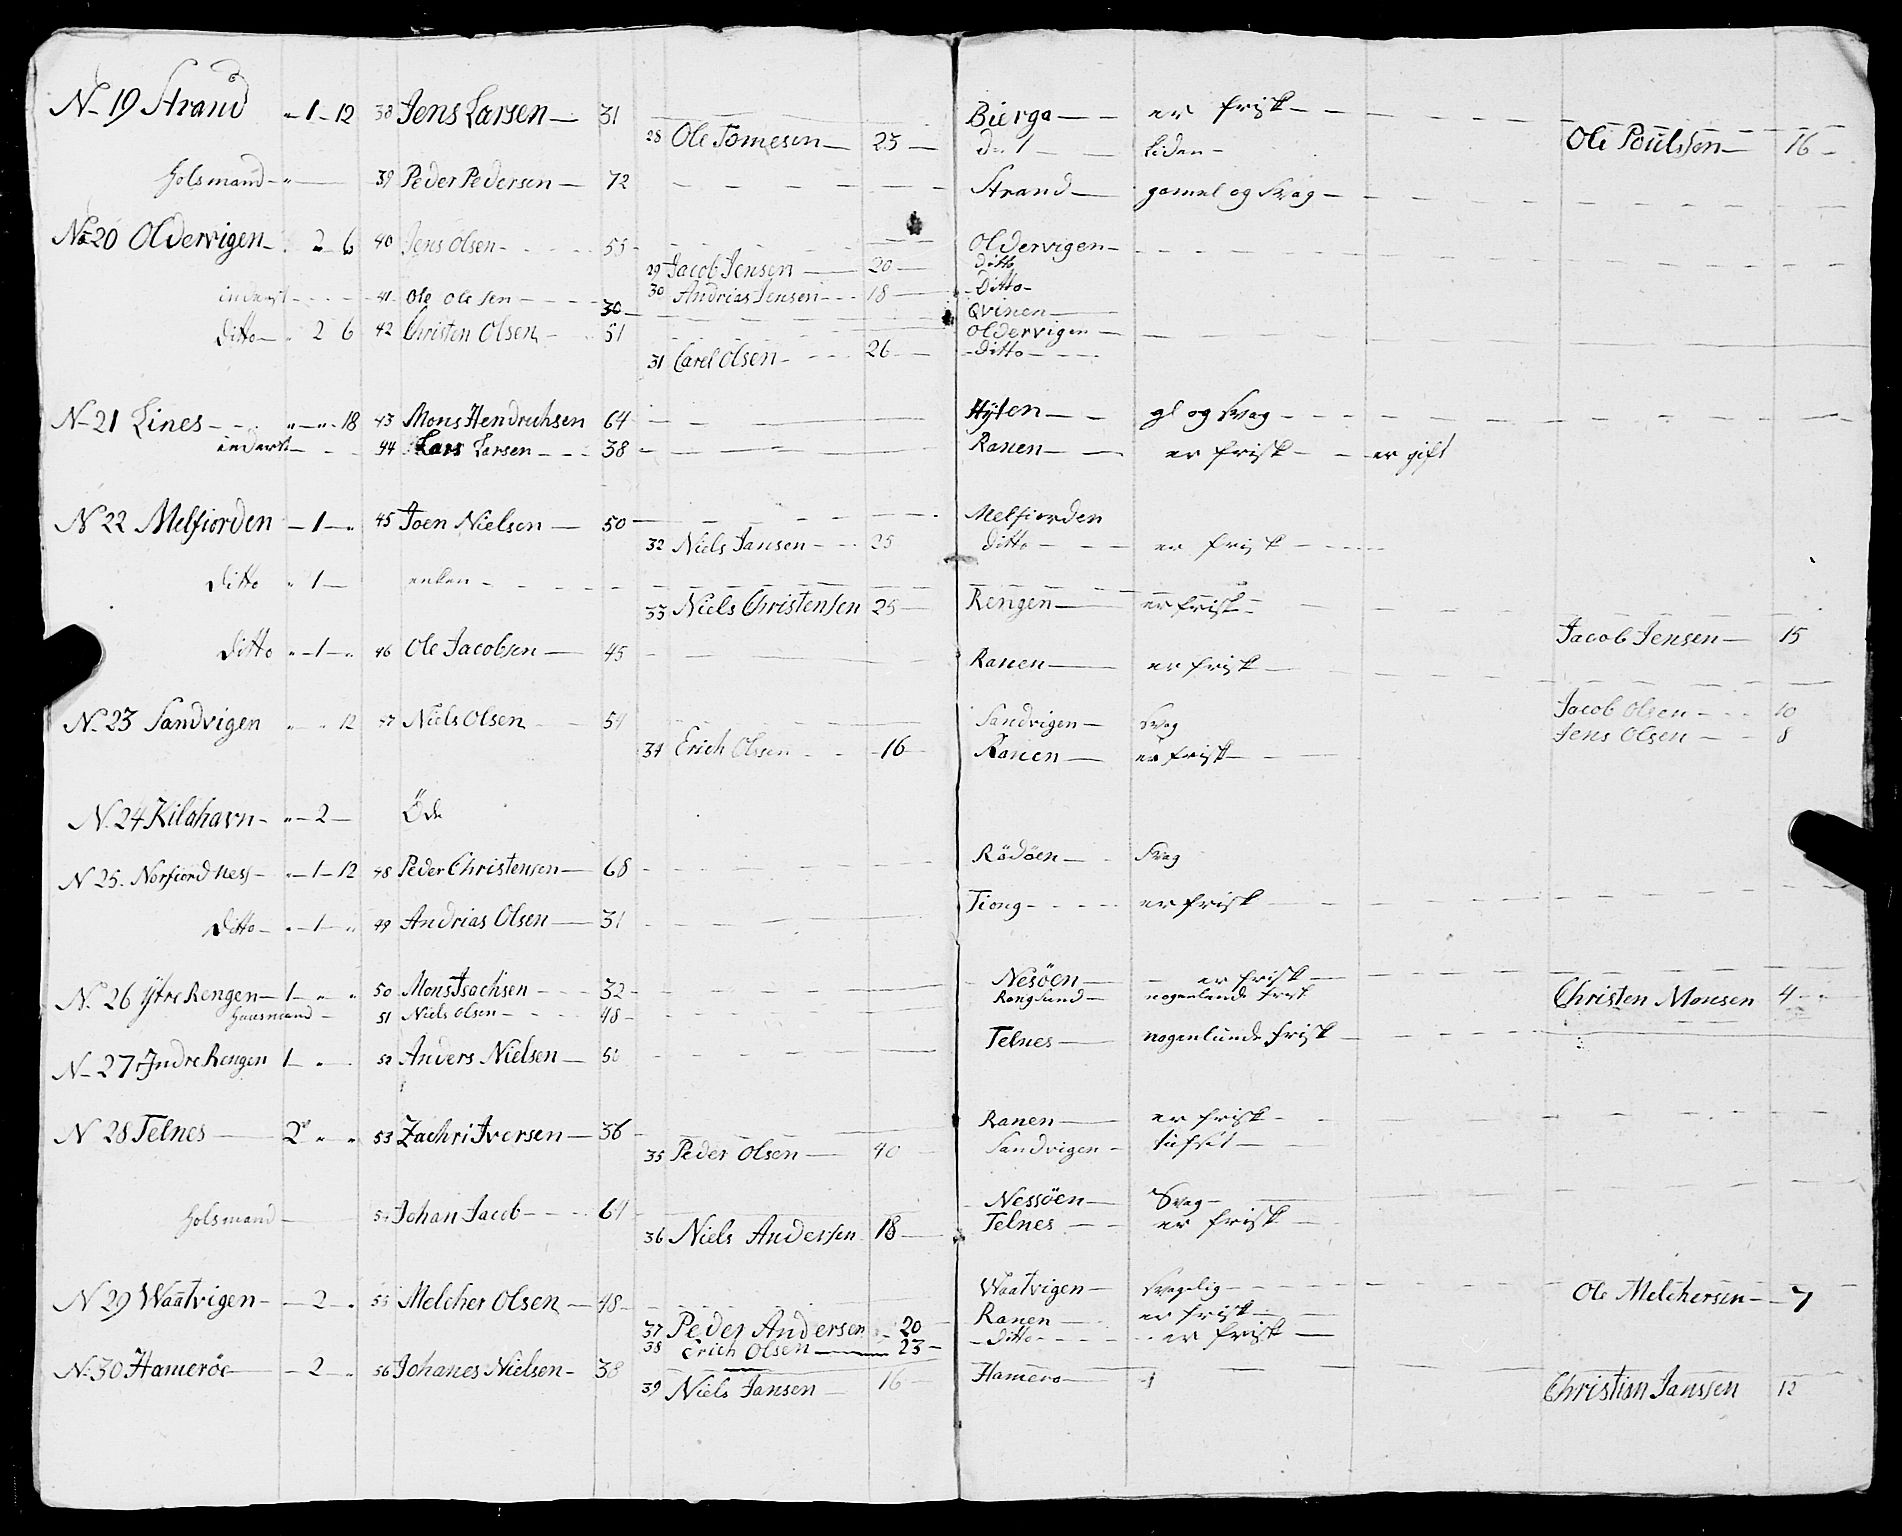 N 19 Strand " 1 12 38 Jens Larsen 31 Bierga er frisk
28 Ole Tomesen 25 do 1 liden Ole Poulssen 16
Holsmand 39 Peder Pedersen 72 Strand gamel og Svag
No 20 Oldervigen 2 6 40 Jens Olsen 55 Oldervigen
29 Jacob Jensen 20 ditto
inderst 41 Ole Olesen 30 Andrias Jensen 18 Ditto
30 Qvinen
Ditto 2 6 42 Christen Olsen 51 Oldervigen
31 Carel Olsen 26 ditto
N 21 Lines " " 18 43 Mons Hendrichsen 64 gl og Svag
inderst 44 Lars Larsen 38 Ranen er frisk er gift
N 22 Melfiorden 1 " 45 Joen Nielsen 50 Melfiorden
32 Niels Jansen 25 ditto er frisk
Ditto " 1 enken
33 Niels Christensen 25 Rengen er frisk
Ditto " 1 " 46 Ole Jacobsen 45 Ranen er frisk Jacob Jensen 15
N 23 Sandvigen " " 12 47 Niels Olsen 54 Sandvigen Svag Jacob Olsen 10
34 Erich Olsen 16 Ranen er frisk Jens Olsen 8
N. 24 Kilahavn " 2 Öde
N 25. Norfiordness " 1 12 48 Peder Christensen 68 Rödöen Svag
Ditto " 1 " 49 Andrias Olsen 31 Tiong er frisk
N. 26 Ytre Rengen 1 " " 50 Mons Isachsen 32 Nesöen er frisk Christen Monsen 4
Huusmand 51 Niels Olsen 48 Rangsund nogenlunde frisk
N 27 Indre Rengen 1 " 52 Anders Nielsen 50 Telnes nogenlunde frisk
N 28 Telnes 2 " " 53 Zachri Iversen 36 Ranen er frisk
35 Peder Olsen 40 Sandvigen
Holsmand 54 Johan Jacob 64 Nessöen Svag
36 Niels Anderssen 18 Telnes er frisk
N 29 Waatvigen 2 " 55 Melcher Olsen 48 Waatvigen Svagelig Ole Melchersen 7
37 Peder Andersen 20 Ranen er frisk
38 Erich Olsen 23 ditto er frisk
N. 30 Hameröe 2 " 56 Johanes Nielsen 38 Hamero
39 Niels Jansen 16 Christian Janssen 12